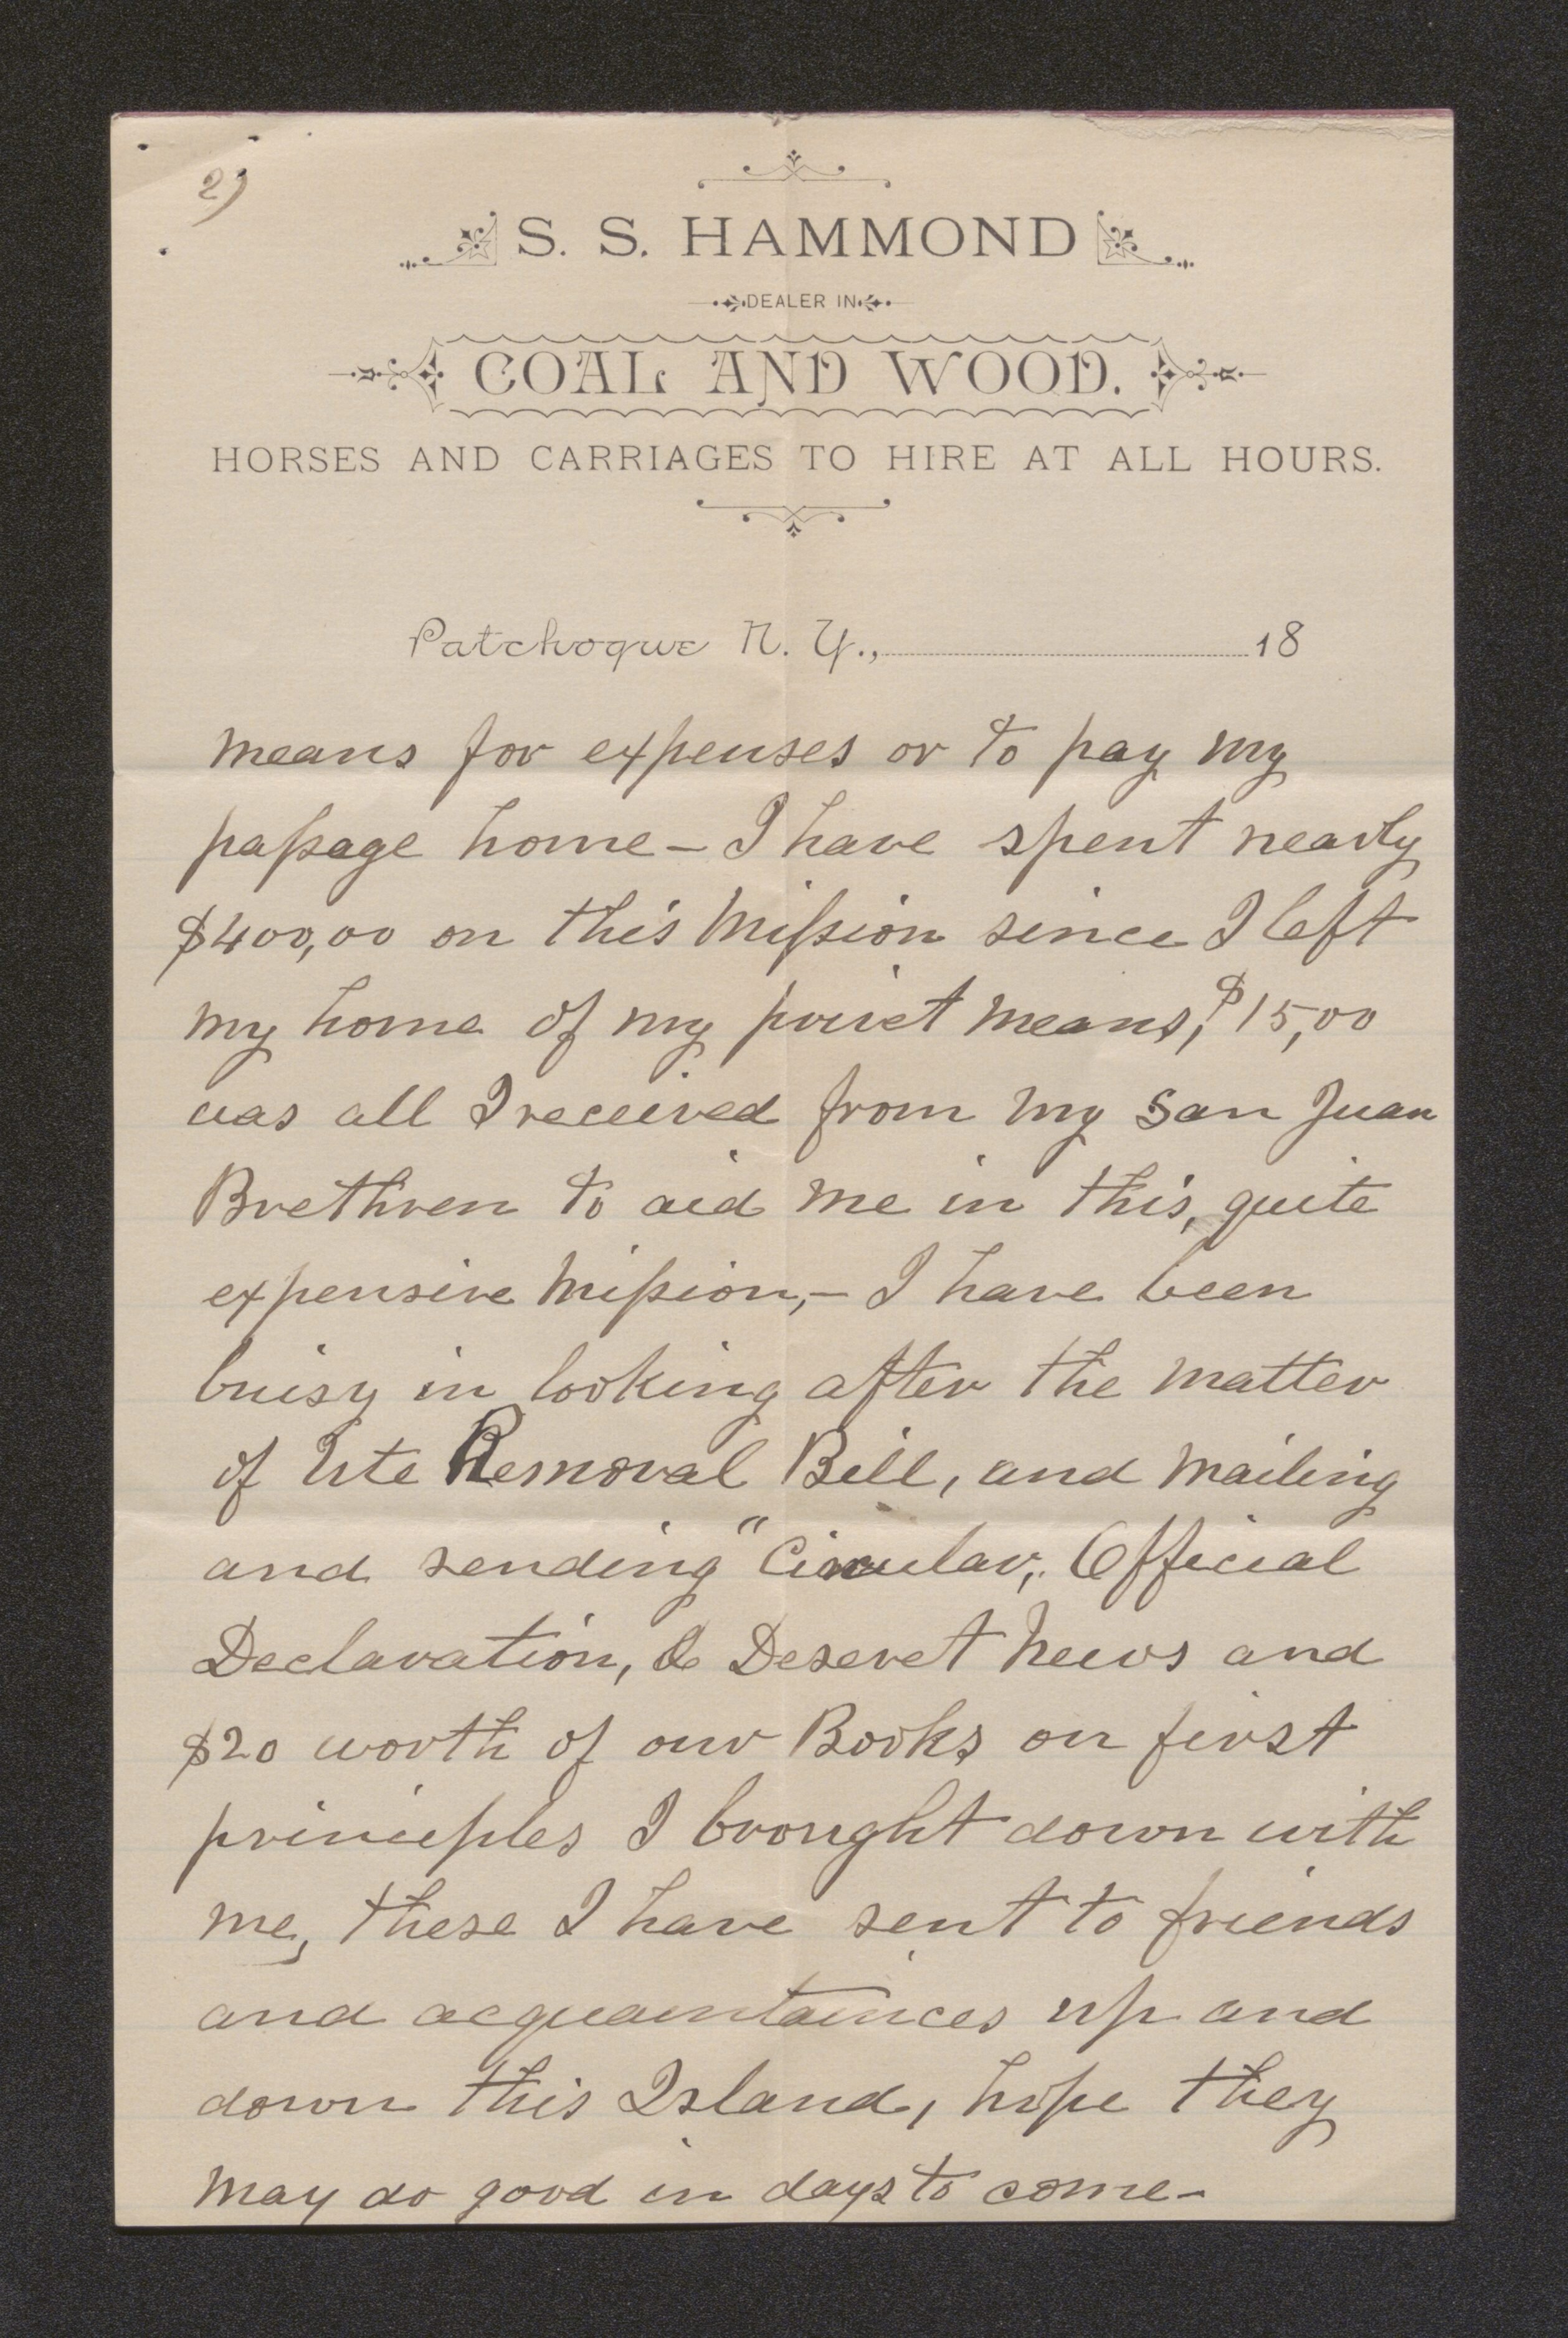 2)
S. S. HAMMOND
DEALER IN
COAL AND WOOD.
HORSES AND CARRIAGES TO HIRE AT ALL HOURS.
Patchogue N. Y., 18
means for expenses or to pay my
passage home – I have spent nearly
$400,00 on this Mission since I left
my home of my privet means, $15,00
was all I received from my San Juan
Brethren to aid me in this, quite
expensive Mission, – I have been
buisy in looking after the matter
of Ute Removal Bill, and mailing
and sending "Circular, Official
Declaration, & Deseret News and
$20 worth of our Books on first
principles I brought down with
me, these I have sent to friends
and acquaintainces up and
down this Island, hope they
may do good in days to come –